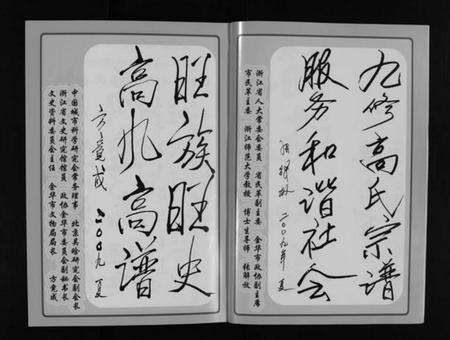 九修高氏宗谱
服务和谐社会
二〇〇九年夏
浙江省人大常委会委员 省民革副主委 金华市政协副主席
市民革主委 浙江师范大学教授 博士生导师 张解放
旺族旺史
高风高谱
方竟成 二〇〇九夏
中国城市科学研究会常务理事 北京吴晗研究会副会长
浙江省文史研究馆馆员 政协金华市委员会副秘书长
文史资料委员会主任 金华市文物局局长 方竟成